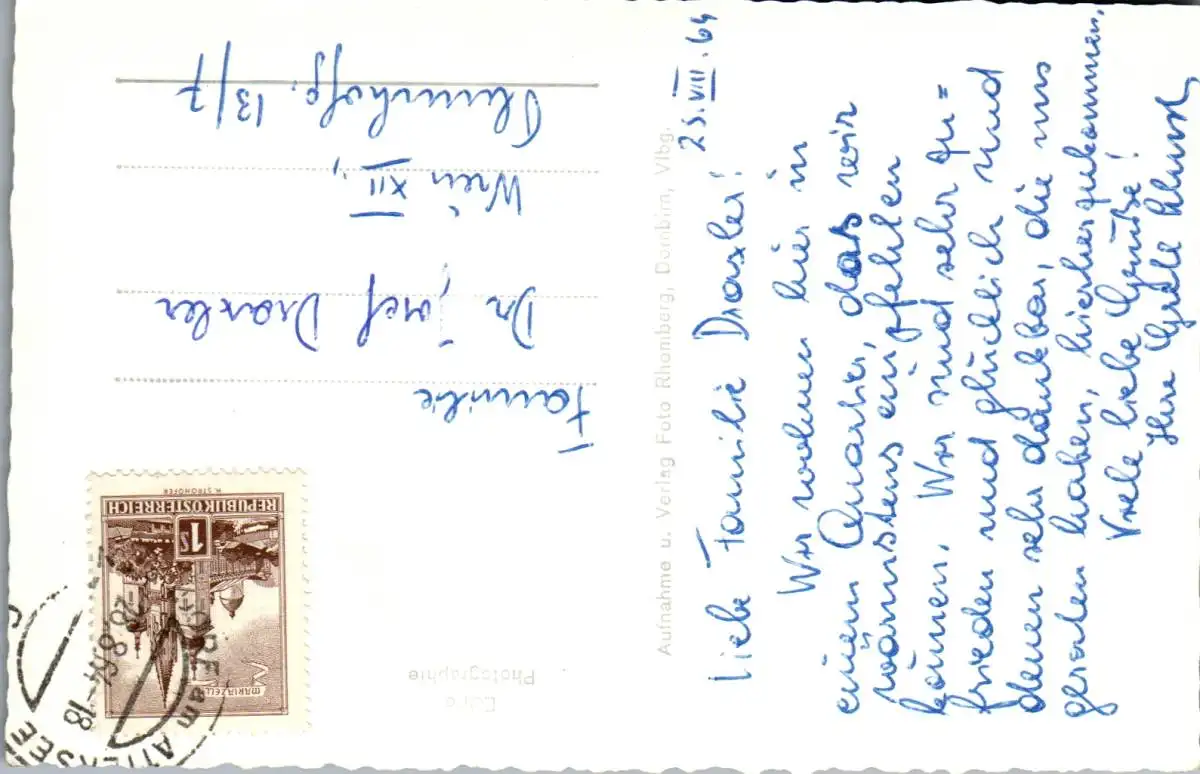 25.VIII.64
Liebe Familie Draxler!
Wir wohnen hier in
einem Quartier, das wir
wärmstens empfehlen
können. Wir sind sehr zu=
frieden und glücklich und
denen sehr dankbar, die uns
geraten haben, hierherzukommen.
Viele liebe Grüße!
Ihre Grete
Aufnahme u. Verlag Foto Rhomberg, Dornbirn, Vlbg.
Familie
Dr. Josef Draxler
Wien XII.,
13/7
Photographie
REPUBLIK ÖSTERREICH
1S
MARIAZELL
am ATTERSEE
-18